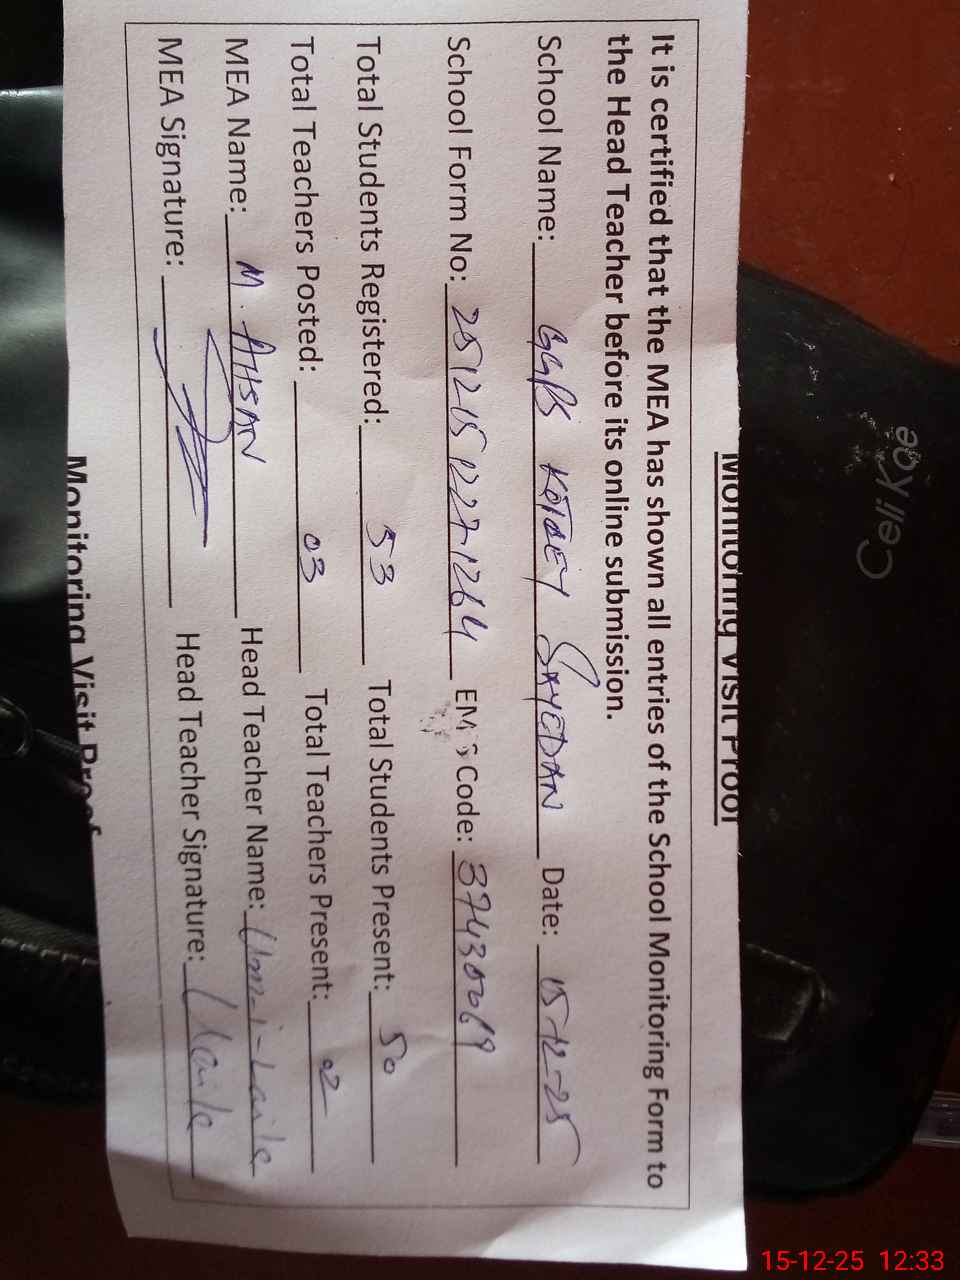 Monitoring Visit Proof
It is certified that the MEA has shown all entries of the School Monitoring Form to
the Head Teacher before its online submission.
School Name: GGPS KOTBEY SAYEDAN Date: 15-12-25
School Form No: 25121512271264 EMIS Code: 37430069
Total Students Registered: 53 Total Students Present: 50
Total Teachers Posted: 03 Total Teachers Present: 02
MEA Name: M. AHSAN Head Teacher Name: Umm-i-Laila
MEA Signature: Head Teacher Signature: Laila
Monitoring Visit Proof
Cell Kge
15-12-25 12:33